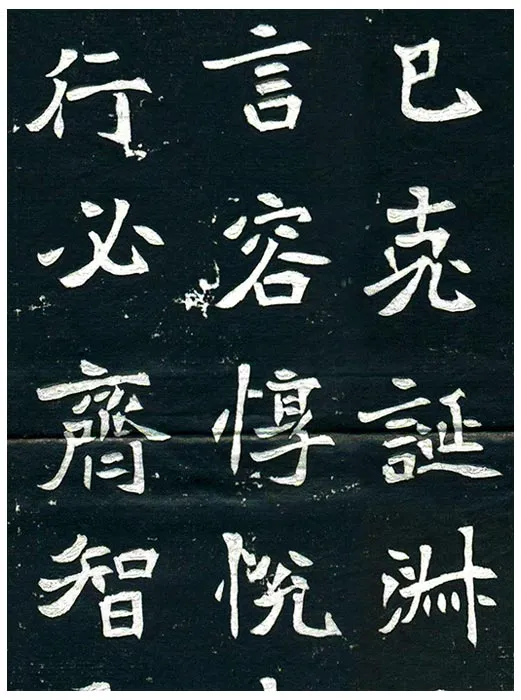 已克誕
言容惇悅
行必齊智